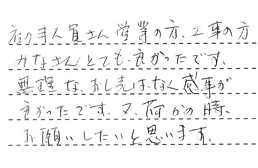 さん 営業の方、工事の方
みなさんとても良かったです。
無理な、おし売はなく感事が
良かったです。又、何かの時、
お願いしたいと思います。